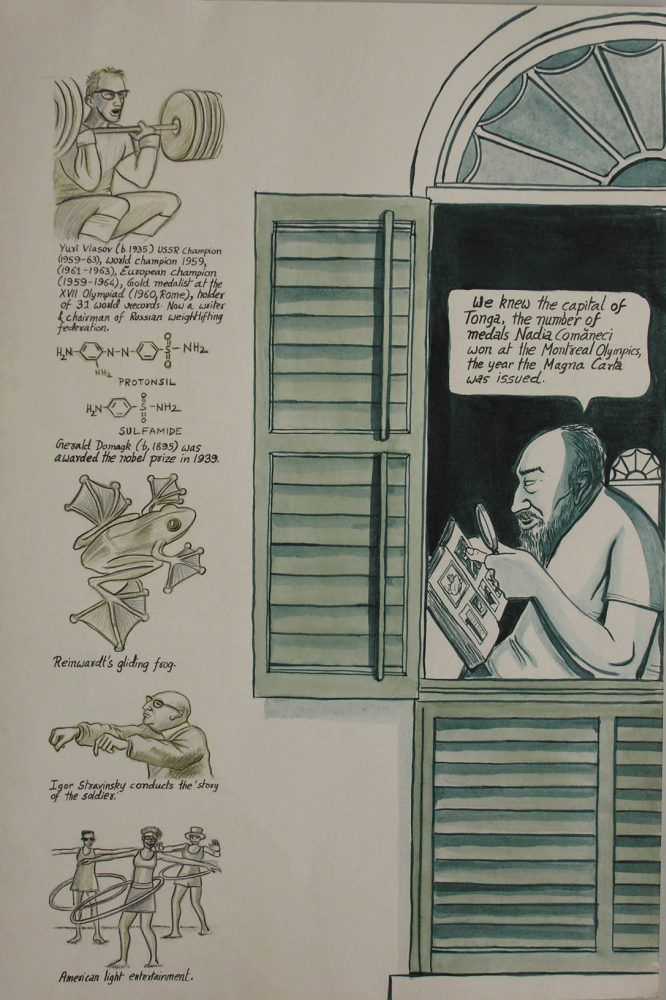 Yuri Vlasov (b.1935) USSR Champion
(1959-63), world champion 1959,
(1961-1963), European champion
(1959-1964), Gold medalist at the
XVII Olympiad (1960, Rome), holder
of 31 world records. Now a writer
& chairman of Russian weightlifting
federation.
H₂N N=N S NH₂
O
O
NH₂
PROTONSIL
H₂N S-NH₂
O
O
SULFAMIDE
Gerald Domagk (b,1895) was
awarded the nobel prize in 1939.
Reinwardt's gliding frog.
Igor Stravinsky conducts the 'story
of the soldier.'
American light entertainment.
We knew the capital of
Tonga, the number of
medals Nadia Comăneci
won at the Montreal Olympics,
the year the Magna Carta
was issued.